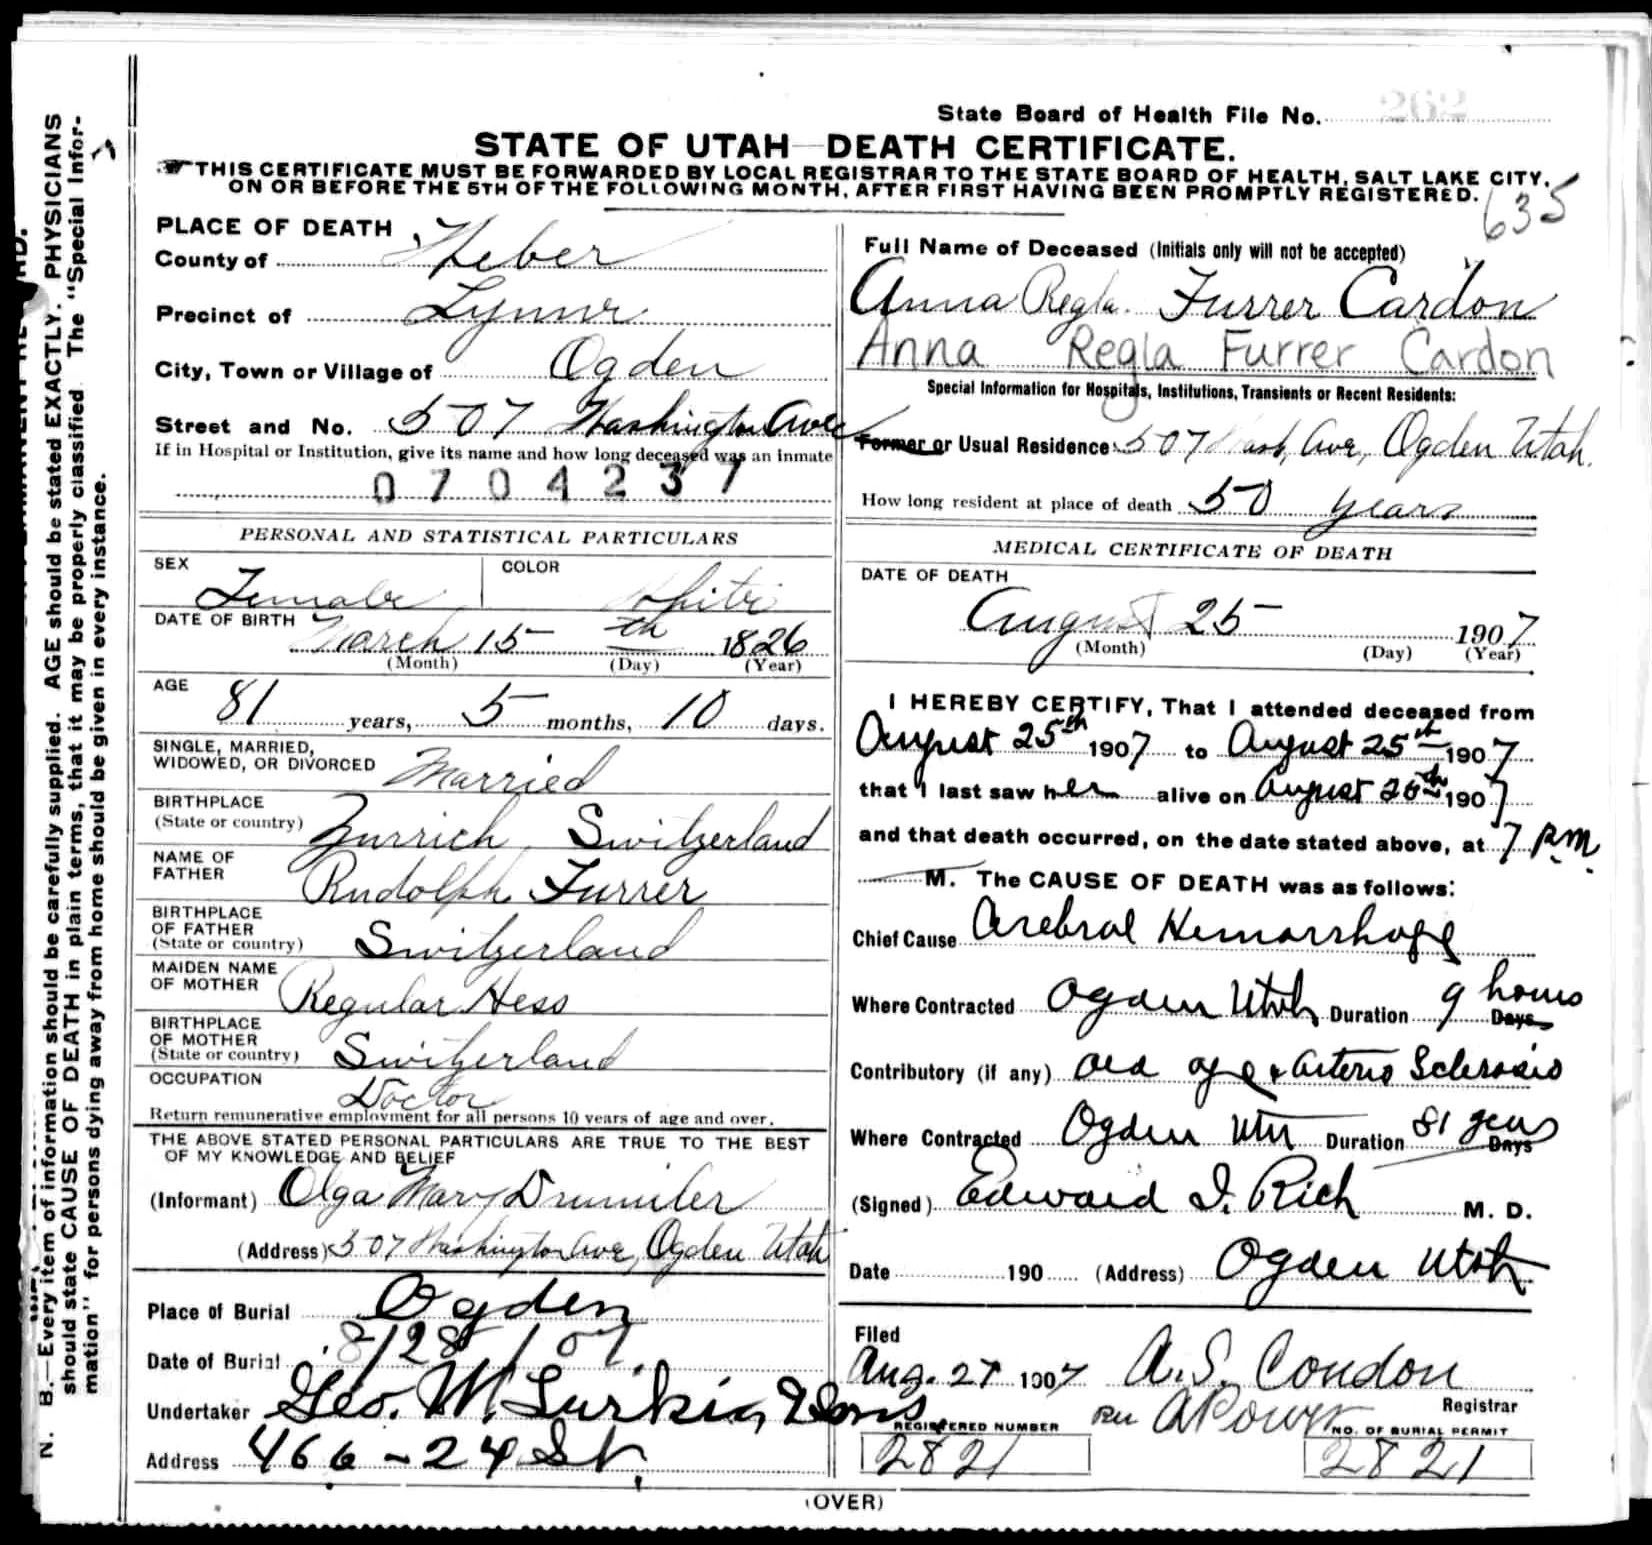 State Board of Health File No. 262
STATE OF UTAH—DEATH CERTIFICATE.
THIS CERTIFICATE MUST BE FORWARDED BY LOCAL REGISTRAR TO THE STATE BOARD OF HEALTH, SALT LAKE CITY,
ON OR BEFORE THE 5TH OF THE FOLLOWING MONTH, AFTER FIRST HAVING BEEN PROMPTLY REGISTERED.
635
PLACE OF DEATH
County of Weber
Precinct of Lynne
City, Town or Village of Ogden
Street and No. 507 Washington Ave
If in Hospital or Institution, give its name and how long deceased was an inmate
0704237
PERSONAL AND STATISTICAL PARTICULARS
SEX Female COLOR White
DATE OF BIRTH March 15 th 1826
(Month) (Day) (Year)
AGE 81 years, 5 months, 10 days.
SINGLE, MARRIED,
WIDOWED, OR DIVORCED Married
BIRTHPLACE
(State or country) Zurrich, Switzerland
NAME OF
FATHER Rudolph Furrer
BIRTHPLACE
OF FATHER
(State or country) Switzerland
MAIDEN NAME
OF MOTHER Regular Hess
BIRTHPLACE
OF MOTHER
(State or country) Switzerland
OCCUPATION Doctor
Return remunerative employment for all persons 10 years of age and over.
THE ABOVE STATED PERSONAL PARTICULARS ARE TRUE TO THE BEST
OF MY KNOWLEDGE AND BELIEF
(Informant) Olga Mary
(Address) 507 Washington Ave, Ogden Utah
Place of Burial Ogden
Date of Burial 8/28/07.
Undertaker Geo. W. Larkin, & Sons
Address 466-24 St.
Full Name of Deceased (Initials only will not be accepted)
Anna Regla Furrer Cardon
Anna Regla Furrer Cardon
Special Information for Hospitals, Institutions, Transients or Recent Residents:
Former or Usual Residence 507 Wash, Ave, Ogden Utah.
How long resident at place of death 50 years
MEDICAL CERTIFICATE OF DEATH
DATE OF DEATH
August 25 1907
(Month) (Day) (Year)
I HEREBY CERTIFY, That I attended deceased from
August 25th 1907 to August 25th 1907
that I last saw her alive on August 25th 1907
and that death occurred, on the date stated above, at 7 P.M.
M. The CAUSE OF DEATH was as follows:
Chief Cause Cerebral Hemorrhage
Where Contracted Ogden Utah Duration 9 hours Days
Contributory (if any) Old age & Arterio Sclerosis
Where Contracted Ogden Utah Duration 81 years Days
(Signed) Edward I. Rich M. D.
Date 190 (Address) Ogden Utah
Filed
Aug. 27 1907 A. S. Condon
Registrar
REGISTERED NUMBER NO. OF BURIAL PERMIT
2821 2821
(OVER)
N. B.—Every item of information should be carefully supplied. AGE should be stated EXACTLY. PHYSICIANS
should state CAUSE OF DEATH in plain terms, that it may be properly classified. The "Special Infor-
mation" for persons dying away from home should be given in every instance.